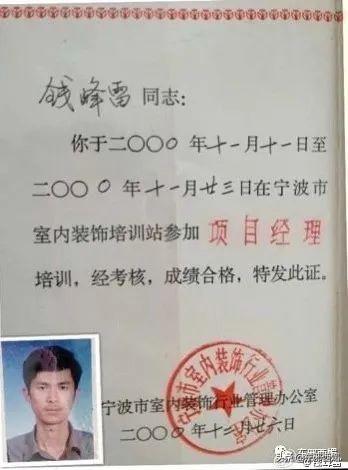 钱峰雷同志:
你于二〇〇〇年十一月十一日至
二〇〇〇年十一月廿三日在宁波市
室内装饰培训站参加 项目经理
培训，经考核，成绩合格，特发此证。
宁波市室内装饰行业管理办公室
宁波市室内装饰行业管理办公室
二〇〇〇年十二月廿六日